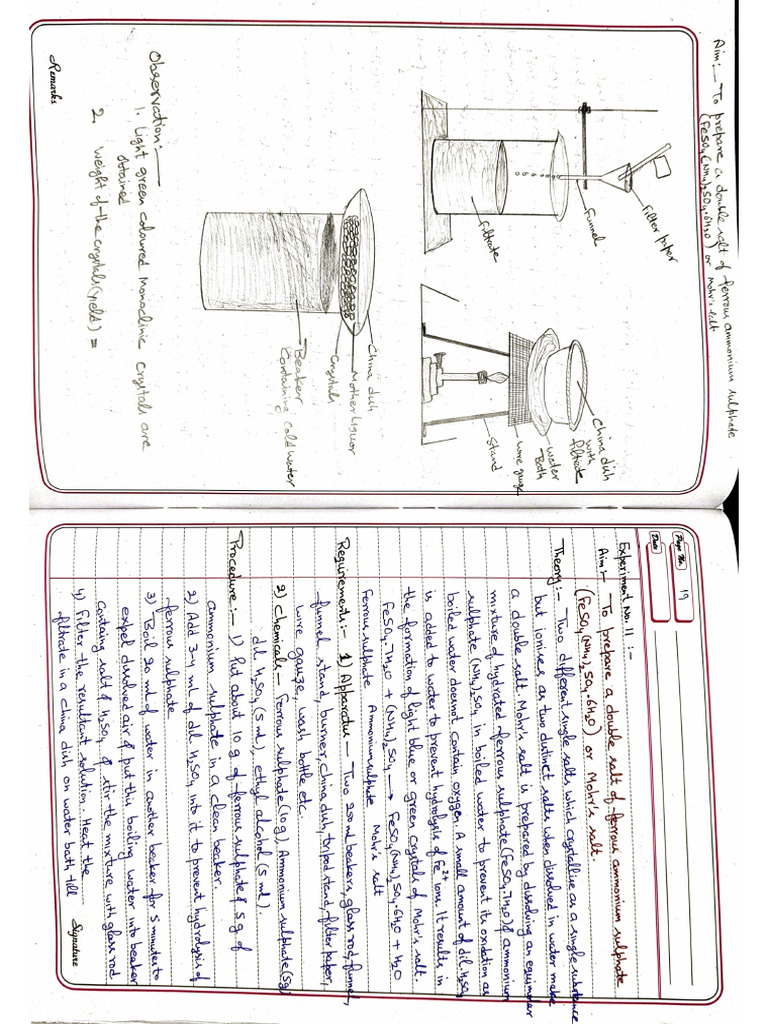 Aim:- To prepare a double salt of ferrous ammonium sulphate
(FeSO4(NH4)2SO4.6H2O) or Mohr's salt
Filter paper
Funnel
Filtrate
China dish
with
filtrate
Water
Bath
wire gauze
Stand
China dish
Mother Liquor
Crystals
Beaker
Containing cold water
Observation:-
1. Light green coloured Monoclinic Crystals are
obtained
2. Weight of the crystals (yield) =
Remarks
Page No. 19
Date
Experiment No. 11 :-
Aim:- To prepare a double salt of ferrous ammonium sulphate
(FeSO4(NH4)2SO4.6H2O) or Mohr's salt.
Theory:- Two different single salts which crystallise as a single substance
but ionises as two distinct salts when dissolved in water make
a double salt. Mohr's salt is prepared by dissolving an equimolar
mixture of hydrated ferrous sulphate (FeSO4.7H2O) & ammonium
sulphate (NH4)2SO4 in boiled water to prevent its oxidation as
boiled water doesnot contain oxygen. A small amount of dil. H2SO4
is added to water to prevent hydrolysis of Fe2+ ions. It results in
the formation of light blue or green crystals of Mohr's salt.
FeSO4.7H2O + (NH4)2SO4 → FeSO4(NH4)2SO4.6H2O + H2O
Ferrous sulphate Ammonium sulphate Mohr's salt
Requirements:- 1) Apparatus- Two 250 ml beakers, glass rod, funnel,
funnel stand, burner, china dish, tripod stand, filter paper,
wire gauze, wash bottle etc.
2) Chemicals- Ferrous sulphate (10g), Ammonium sulphate (5g)
dil. H2SO4 (5 mL), ethyl alcohol (5 mL).
Procedure:- 1) Put about 10 g of ferrous sulphate & 5 g of
ammonium sulphate in a clean beaker.
2) Add 3-4 mL of dil H2SO4 into it to prevent hydrolysis of
ferrous sulphate
3) Boil 20 ml of water in another beaker for 5 minutes to
expel dissolved air & put this boiling water into beaker
containg salt & H2SO4 & stir the mixture with glass rod
4) Filter the resultant solution. Heat the
filtrate in a china dish on water bath till
Signature